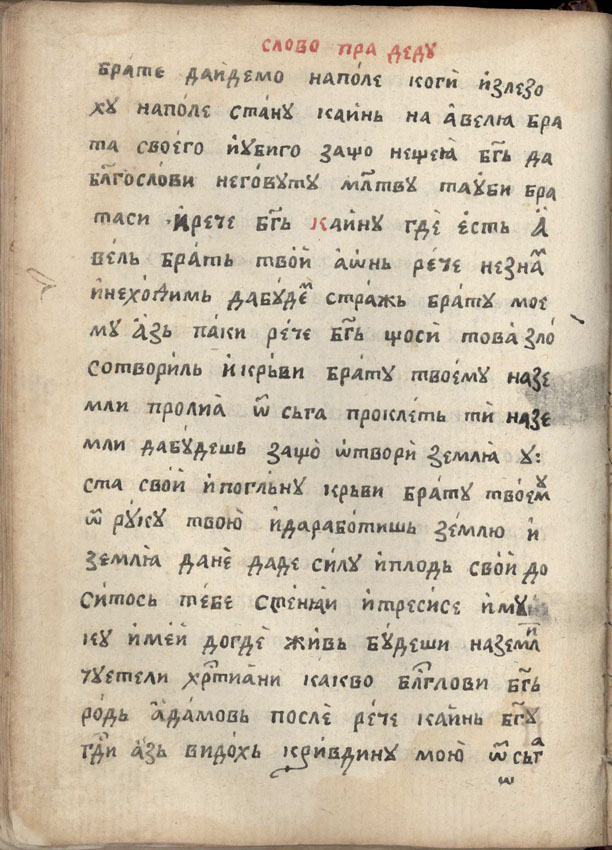 слово пра деду
бра́те да́йдемо напо́ле коги̇̀ и҆злезо
ху напо́ле ста́ну каи́нь на а҆велꙗ бра
та свое́го и҆ꙋбиго зашо нещеѧ̀ бг҃ь да
блг҃ослови него́вꙋтꙋ млт҃вꙋ таꙋби бра
таси И҆рече бг҃ь каи́нꙋ гдѐ е҆сть А҆
вель бра́ть твои̇̀ а҆ѡ́нь ре́че незнаⷨ
и҆нехо́димь дабꙋ́деⷨ стра́жь бра́тꙋ мое
мꙋ А҆зь па́ки ре́че бг҃ь щоси̇̀ това̀ зло́
сотвори́ль и҆кръви бра́тꙋ твое́мꙋ назе
мли пролиа̀ ѿ сьга проклѣть ти̇̀ назе
мли дабꙋ́дешь защо̀ ѡ҆твори̇̀ землꙗ̀ ꙋ:
ста свои̇̀ и҆погль́нꙋ крьви бра́тꙋ твоеⷨꙋ
ѿ рꙋ́кꙋ твою̀ и҆дарабо́тишь зе́млю и҆
землꙗ̀ данѐ даде си́лꙋ и҆плодь свои̇̀ до
си́тось те́бе стенѧ́и и҆тресисе и҆мꙋ
кꙋ и҆ме́й догдѐ живь бꙋ́деши наземлⷤи
чꙋетели хрⷭтиани како́во блг҃лови бг҃ь
ро́дь а҆да́мовь послѐ ре́че каинь бг҃ꙋ
гдⷭи а҆зь видо́хь кри́вдинꙋ мою̀ ѿ сьгⷶ
ѡ